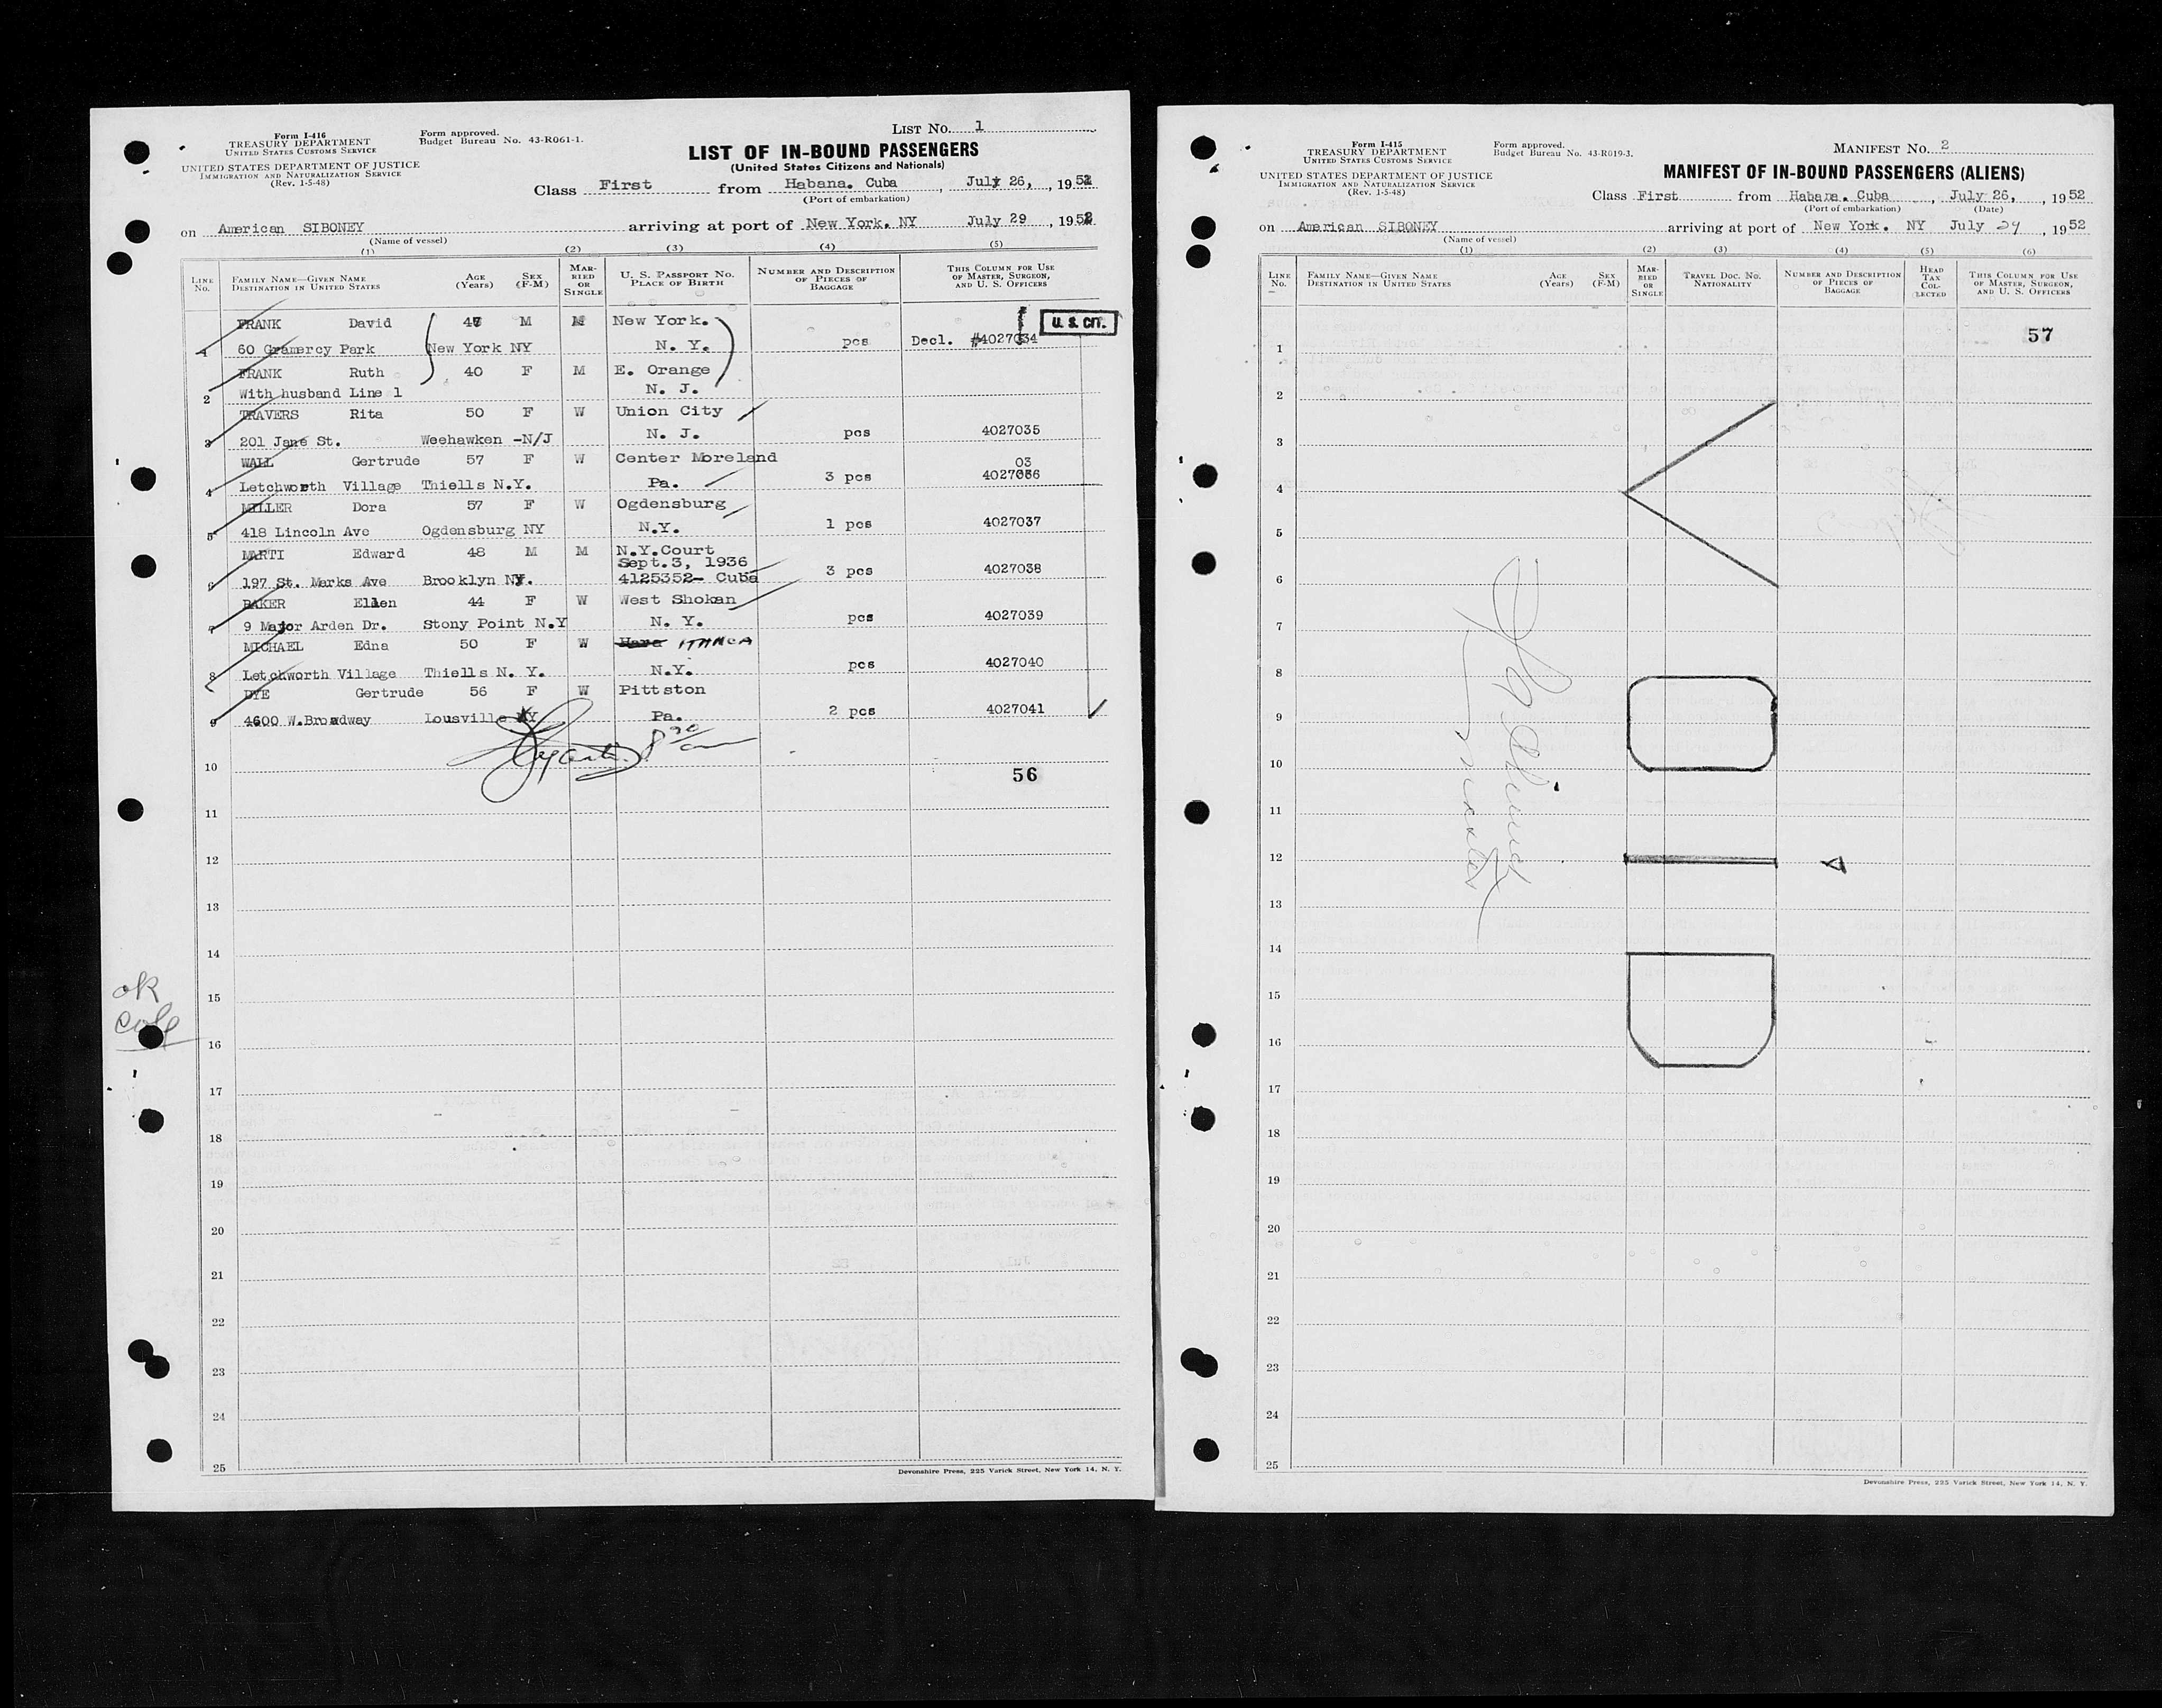 Form I-416
TREASURY DEPARTMENT
UNITED STATES CUSTOMS SERVICE
UNITED STATES DEPARTMENT OF JUSTICE
IMMIGRATION AND NATURALIZATION SERVICE
(Rev. 1-5-48)
Form approved.
Budget Bureau No. 43-R061-1.
LIST NO. 1
LIST OF IN-BOUND PASSENGERS
(United States Citizens and Nationals)
Class First from Habana. Cuba, July 26, 1952
(Port of embarkation)
on American SIBONEY arriving at port of New York. NY July 29, 1952
(Name of vessel)
(1) (2) (3) (4) (5)
LINE NO. FAMILY NAME—GIVEN NAME DESTINATION IN UNITED STATES AGE (Years) SEX (F-M) MARRIED OR SINGLE U. S. PASSPORT NO. PLACE OF BIRTH NUMBER AND DESCRIPTION OF PIECES OF BAGGAGE THIS COLUMN FOR USE OF MASTER, SURGEON, AND U. S. OFFICERS
FRANK David 47 M M New York. U. S. CIT.
1 60 Gramercy Park New York NY N. Y. pcs Decl. #4027034
FRANK Ruth 40 F M E. Orange
2 With husband Line 1 N. J.
TRAVERS Rita 50 F W Union City
3 201 Jane St. Weehawken -N/J N. J. pcs 4027035
WALL Gertrude 57 F W Center Moreland 03
4 Letchworth Village Thiells N.Y. Pa. 3 pcs 4027036
MILLER Dora 57 F W Ogdensburg
5 418 Lincoln Ave Ogdensburg NY N.Y. 1 pcs 4027037
MARTI Edward 48 M M N.Y.Court
Sept.3, 1936
6 197 St. Marks Ave Brooklyn NY. 4125352- Cuba 3 pcs 4027038
BAKER Ellen 44 F W West Shokan
7 9 Major Arden Dr. Stony Point N.Y N. Y. pcs 4027039
MICHAEL Edna 50 F W ITHACA
8 Letchworth Village Thiells N. Y. N.Y. pcs 4027040
DYE Gertrude 56 F W Pittston
9 4600 W.Broadway Lousville KY Pa. 2 pcs 4027041
8 30
10
56
11
12
13
14
ok
15
16
17
18
19
20
21
22
23
24
25
Devonshire Press, 225 Varick Street, New York 14, N. Y.
Form I-415
TREASURY DEPARTMENT
UNITED STATES CUSTOMS SERVICE
UNITED STATES DEPARTMENT OF JUSTICE
IMMIGRATION AND NATURALIZATION SERVICE
(Rev. 1-5-48)
Form approved.
Budget Bureau No. 43-R019-3.
MANIFEST NO. 2
MANIFEST OF IN-BOUND PASSENGERS (ALIENS)
Class First from Habana. Cuba, July 26, 1952
(Port of embarkation) (Date)
on American SIBONEY arriving at port of New York. NY July 29, 1952
(Name of vessel)
(1) (2) (3) (4) (5) (6)
LINE NO. FAMILY NAME—GIVEN NAME DESTINATION IN UNITED STATES AGE (Years) SEX (F-M) MARRIED OR SINGLE TRAVEL DOC. NO. NATIONALITY NUMBER AND DESCRIPTION OF PIECES OF BAGGAGE HEAD TAX COLLECTED THIS COLUMN FOR USE OF MASTER, SURGEON, AND U. S. OFFICERS
57
1
2
3
4
5
6
7
8
9
10
11
12
13
14
15
16
17
18
19
20
21
22
23
24
25
VOID
Devonshire Press, 225 Varick Street, New York 14, N. Y.